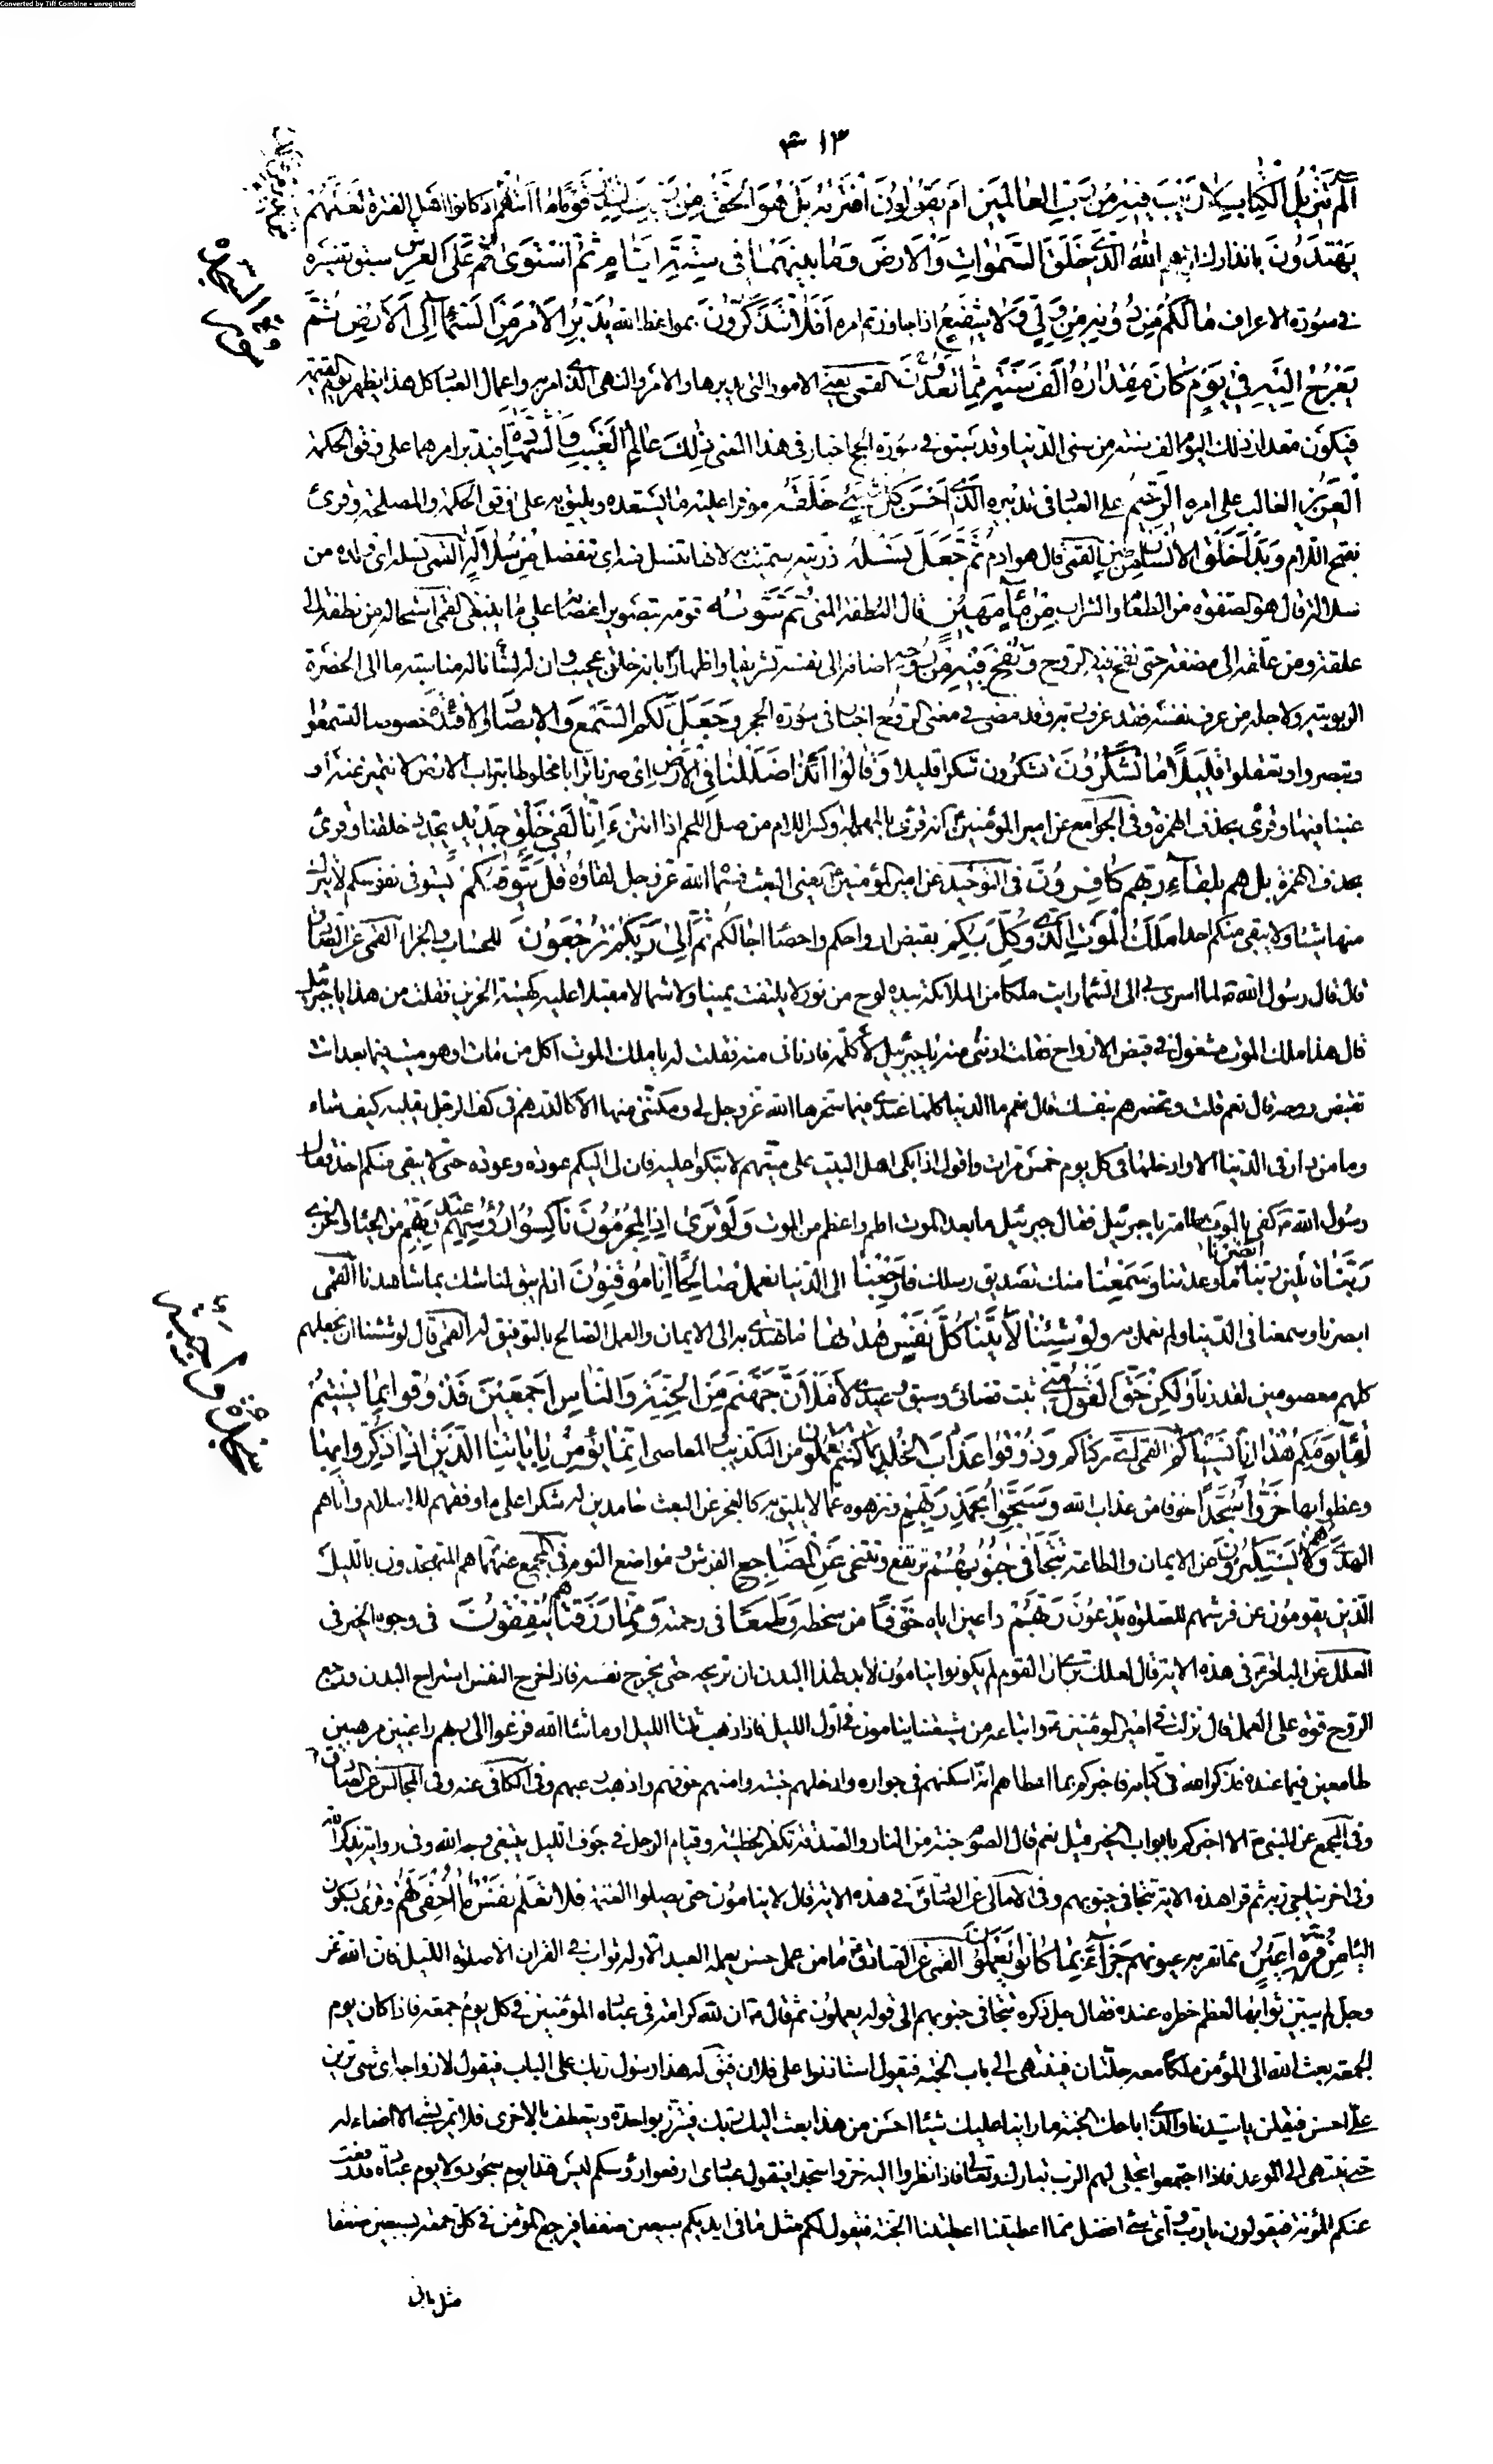 Converted by Tiff Combine - unregistered
٣١٣
الم تنزيل الكتاب لا ريب فيه من رب العالمين ام يقولون افتريه بل هو الحق من ربك لتنذر قوما ما اتيهم اذ كانوا اهل الفترة لعلهم
يهتدون بانذارك اياهم الله الذى خلق السموات والارض وما بينهما فى ستة ايام ثم استوى على العرش سبق تفسيره
فى سورة الاعراف ما لكم من دونه من ولى ولا شفيع اذا جاوزتم امره افلا تتذكرون بمواعظ الله يدبر الامر من السماء الى الارض ثم
يعرج اليه فى يوم كان مقداره الف سنة مما تعدون القمى يعنى الامور التى يدبرها والامر والنهى الذى امر به واعمال العباد كل هذا يظهر يوم القيمة
فيكون مقدار ذلك اليوم الف سنة من سنى الدنيا وقد سبق فى سورة الحج اخبار فى هذا المعنى ذلك عالم الغيب والشهادة فيدبر امرهما على وفق الحكمة
العزيز الغالب على امره الرحيم على العباد فى تدبيره الذى احسن كل شىء خلقه موفرا عليه ما يستعده ويليق به على وفق الحكمة والمصلحة وقرئ
بفتح اللام وبدأ خلق الانسان من طين القمى قال هو ادم ثم جعل نسله ذريته سميت به لانها تنسل منه اى تنفصل من سلالة القمى نسله اى ولده من
سلالة قال هو الصفوة من الطعام والشراب من ماء مهين قال النطفة المنى ثم سويه قومه بتصوير اعضائه على ما ينبغى القمى استحاله من نطفة الى
علقة ومن علقة الى مضغة حتى نفخ فيه الروح ونفخ فيه من روحه اضافه الى نفسه تشريفا واظهارا بانه خلق عجيب وان له لشأنا له مناسبة ما الى الحضرة
الربوبية ولاجله من عرف نفسه فقد عرف ربه وقد مضى فى معنى الروح اخبار فى سورة الحجر وجعل لكم السمع والابصار والافئدة خصوصا لتسمعوا
وتبصروا وتعقلوا قليلا ما تشكرون تشكرون شكرا قليلا وقالوا ائذا ضللنا فى الارض اى صرنا ترابا مخلوطا بتراب الارض لا نتميز عنه او
غبنا فيها وقرئ بحذف الهمزة وفى الجوامع عن امير المؤمنين انه قرئ بالمهملة وكسر اللام من صل اللحم اذا انتن ءانا لفى خلق جديد يجدد خلقنا وقرئ
بحذف الهمزة بل هم بلقاء ربهم كافرون فى التوحيد عن امير المؤمنين يعنى البعث فسماه الله عز وجل لقاءه قل يتوفيكم يستوفى نفوسكم لا يترك
منها شيئا ولا يبقى منكم احدا ملك الموت الذى وكل بكم بقبض ارواحكم واحصاء اجالكم ثم الى ربكم ترجعون للحساب والجزاء القمى عن الصادق
قال قال رسول الله لما اسرى بى الى السماء رايت ملكا من الملائكة بيده لوح من نور لا يلتفت يمينا ولا شمالا مقبلا عليه كهيئة الحزين فقلت من هذا يا جبرئيل
قال هذا ملك الموت مشغول فى قبض الارواح فقلت ادننى منه يا جبرئيل لاكلمه فادنانى منه فقلت له يا ملك الموت اكل من مات او هو ميت فيما بعد انت
تقبض روحه قال نعم قلت وتحضرهم بنفسك قال نعم ما الدنيا كلها عندى فيما سخرها الله عز وجل لى ومكننى منها الا كالدرهم فى كف الرجل يقلبه كيف شاء
وما من دار فى الدنيا الا وادخلها فى كل يوم خمس مرات واقول اذا بكى اهل البيت على ميتهم لا تبكوا عليه فان لى اليكم عودة وعودة حتى لا يبقى منكم احد فقال
رسول الله كفى بالموت طامة يا جبرئيل فقال جبرئيل ما بعد الموت اطم واعظم من الموت ولو ترى اذ المجرمون ناكسوا رؤسهم عند ربهم من الحياء والخزى
ربنا قائلين ربنا ابصرنا ما وعدتنا وسمعنا منك تصديق رسلك فارجعنا الى الدنيا نعمل صالحا انا موقنون اذ لم يبق لنا شك بما شاهدنا القمى
ابصرنا وسمعنا فى الدنيا ولم نعمل به ولو شئنا لاتينا كل نفس هديها ما تهتدى به الى الايمان والعمل الصالح بالتوفيق له القمى قال لو شئنا ان نجعلهم
كلهم معصومين لقدرنا ولكن حق القول منى ثبت قضائى وسبق وعيدى لاملان جهنم من الجنة والناس اجمعين فذوقوا بما نسيتم
لقاء يومكم هذا انا نسيناكم القمى اى تركناكم وذوقوا عذاب الخلد بما كنتم تعملون من التكذيب والمعاصى انما يؤمن باياتنا الذين اذا ذكروا بها
وعظوا بها خروا سجدا خوفا من عذاب الله وسبحوا بحمد ربهم ونزهوه عما لا يليق به كالعجز عن البعث حامدين له شكرا على ما وفقهم للاسلام واتاهم
الهدى وهم لا يستكبرون عن الايمان والطاعة تتجافى جنوبهم ترتفع وتتنحى عن المضاجع الفرش ومواضع النوم فى المجمع عنهما هم المتهجدون بالليل
الذين يقومون عن فرشهم للصلوة يدعون ربهم داعين اياه خوفا من سخطه وطمعا فى رحمته ومما رزقناهم ينفقون فى وجوه الخير فى
العلل عن الباقر فى هذه الاية قال لعلك ترى ان القوم لم يكونوا ينامون لا بد لهذا البدن ان تريحه حتى يخرج نفسه فاذا خرج النفس استراح البدن ورجع
الروح قوة على العمل قال نزلت فى امير المؤمنين واتباعه من شيعتنا ينامون فى اول الليل فاذا ذهب ثلثا الليل او ما شاء الله فزعوا الى ربهم راغبين مرهبين
طامعين فيما عنده فذكر الله فى كتابه فاخبركم بما اعطاهم انه اسكنهم فى جواره وادخلهم جنته وامنهم خوفهم واذهب رعبهم وفى الكافى عنه وفى المجالس عن الصادق
وفى المجمع عن النبى الا اخبركم بابواب الخير قيل نعم قال الصوم جنة من النار والصدقة تكفر الخطيئة وقيام الرجل فى جوف الليل يبتغى وجه الله وفى رواية يذكر الله
وفى اخرى يناجى ربه ثم قرا هذه الاية تتجافى جنوبهم وفى الامالى عن الصادق فى هذه الاية قال لا ينامون حتى يصلوا العتمة فلا تعلم نفس ما اخفى لهم وقرئ بسكون
الياء من قرة اعين مما تقر به عيونهم جزاء بما كانوا يعملون القمى عن الصادق ما من عمل حسن يعمله العبد الا وله ثواب فى القران الا صلوة الليل فان الله عز
وجل لم يبين ثوابها لعظم خطره عنده فقال جل ذكره تتجافى جنوبهم الى قوله يعملون ثم قال ان لله كرامة فى عباده المؤمنين فى كل يوم جمعة فاذا كان يوم
الجمعة بعث الله الى المؤمن ملكا معه حلتان فينتهى الى باب الجنة فيقول استاذنوا لى على فلان فيق له هذا رسول ربك على الباب فيقول لازواجه اى شى ترين
على احسن فيقلن يا سيدنا والذى اباحك الجنة ما راينا عليك شيئا احسن من هذا بعث اليك ربك فيتزر بواحدة ويتعطف بالاخرى فلا يمر بشىء الا اضاء له
حتى ينتهى الى الموعد فاذا اجتمعوا تجلى لهم الرب تبارك وتعالى فاذا نظروا اليه خروا سجدا فيقول عبادى ارفعوا رؤسكم ليس هذا يوم سجود ولا يوم عبادة قد رفعت
عنكم المؤنة فيقولون يا رب واى شىء افضل مما اعطيتنا اعطيتنا الجنة فيقول لكم مثل ما فى ايديكم سبعين ضعفا فيرجع المؤمن فى كل جمعة بسبعين ضعفا